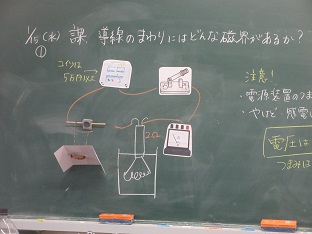 1/5(水) 課 導線のまわりにはどんな磁界があるか?
①
コイルは
注意!
・電源装置のつま
・やけど 感電
2Ω
電圧は
つまみは